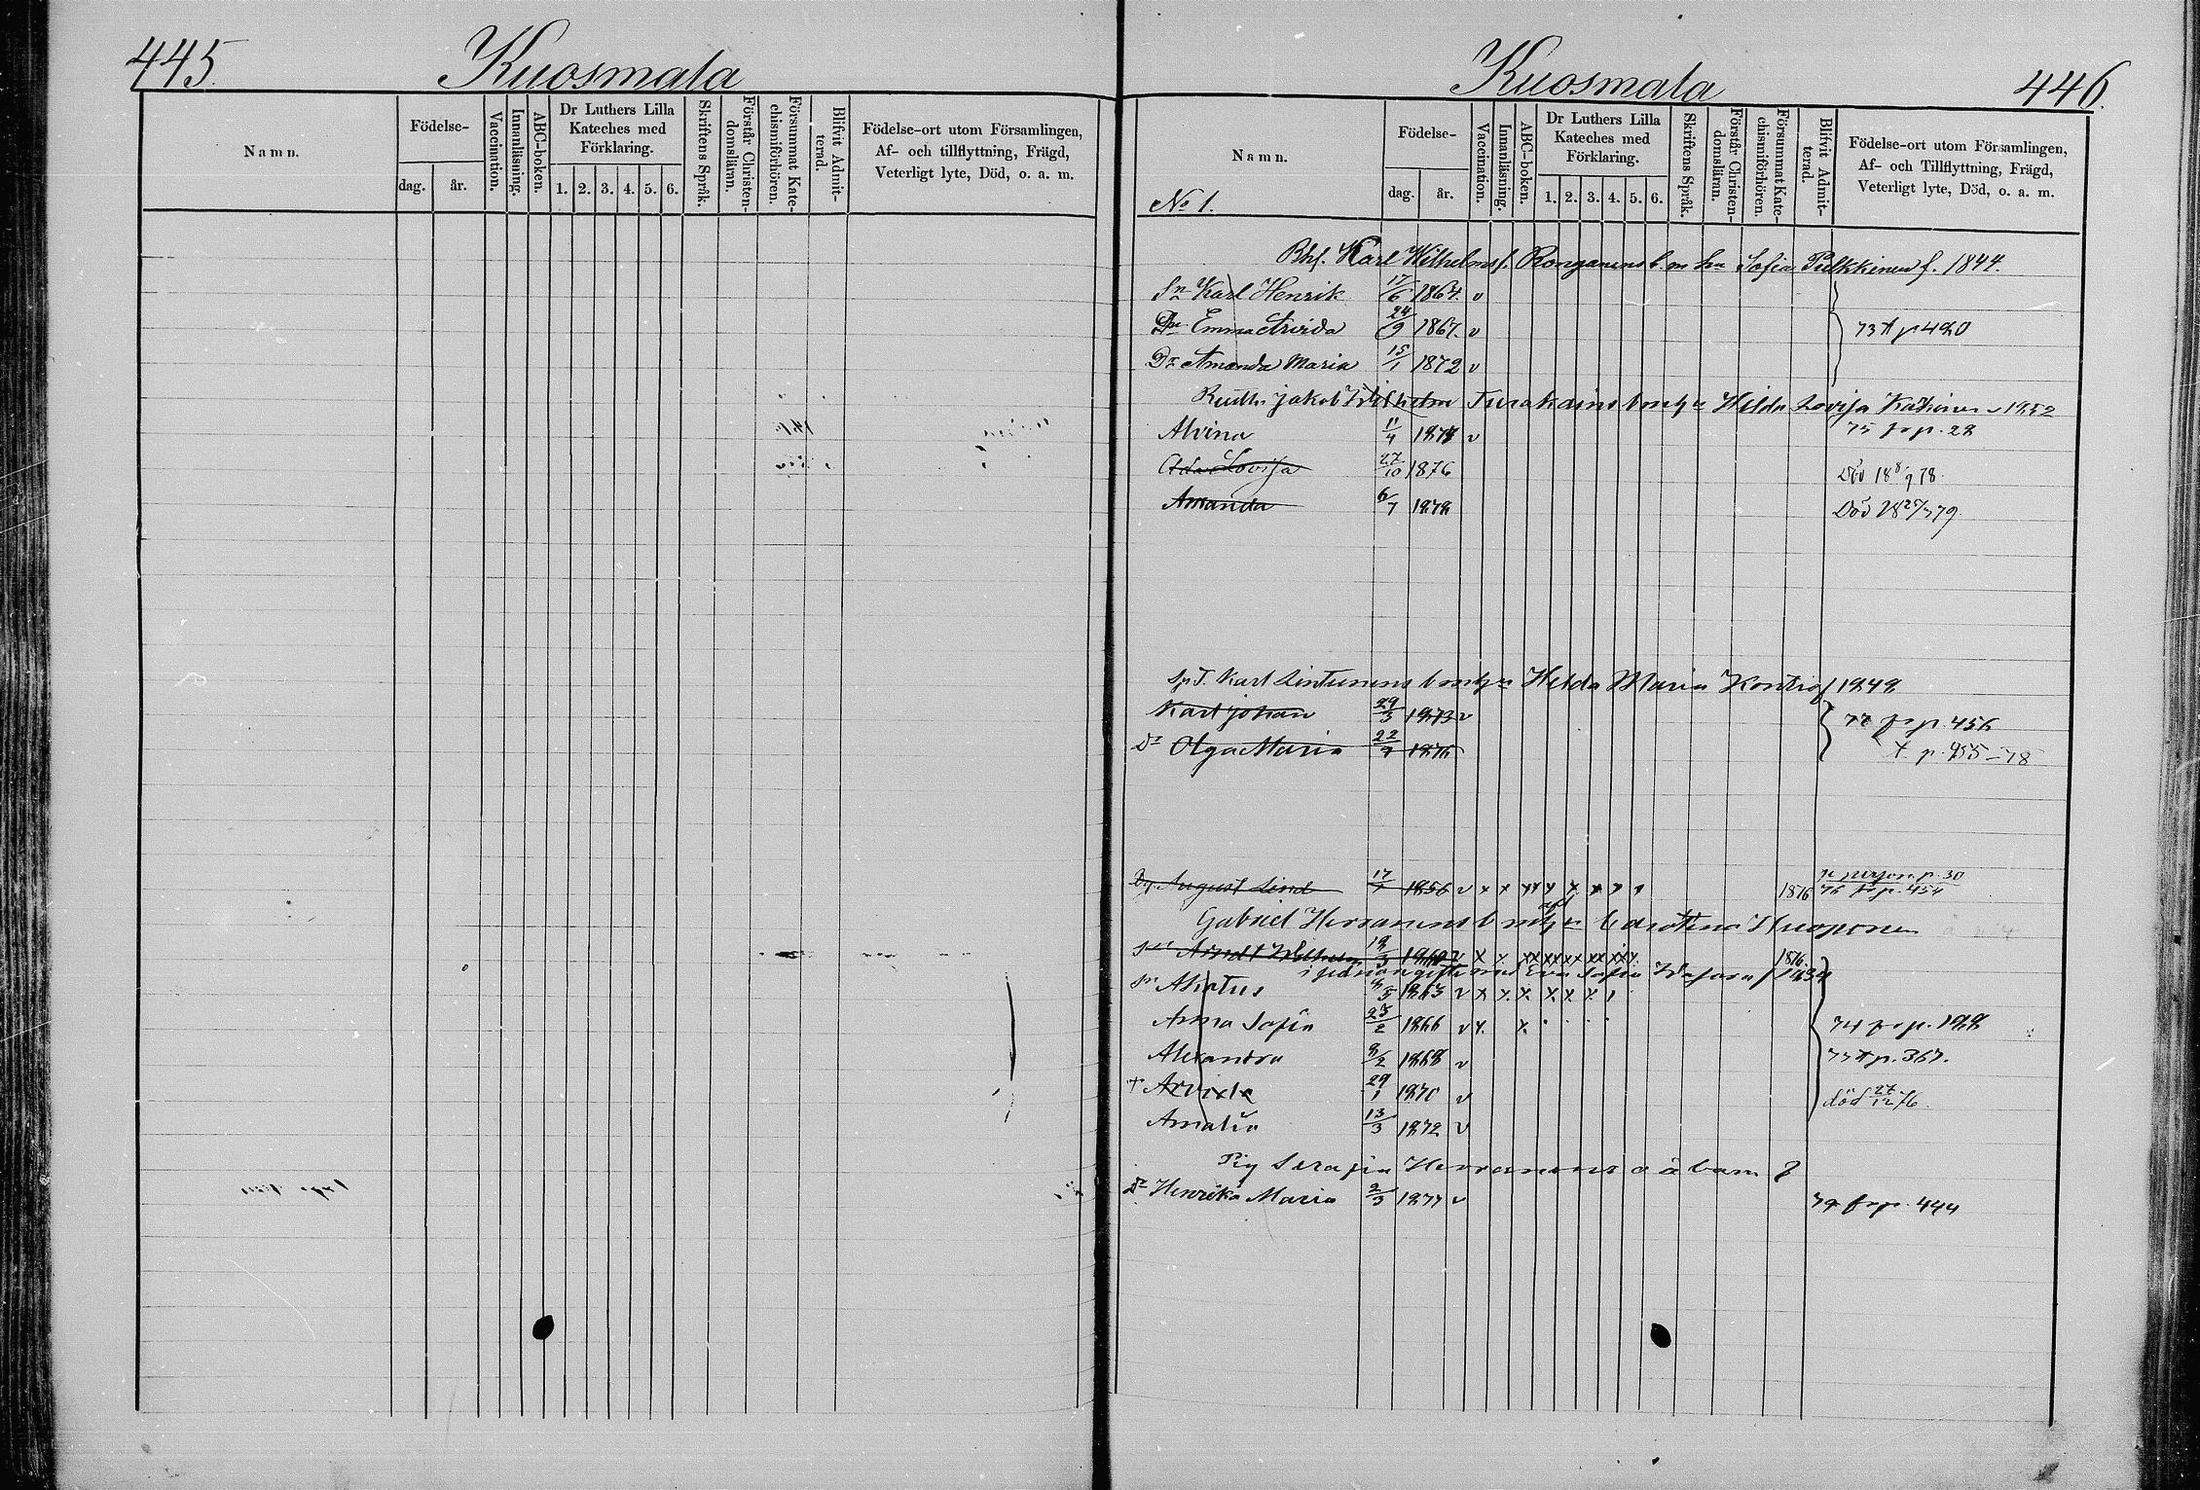 445. Kuosmala
Namn.
Födelse-
dag. år.
Vaccination.
Innanläsning.
ABC-boken.
Dr Luthers Lilla Kateches med Förklaring.
1. 2. 3. 4. 5. 6.
Skriftens Språk.
Förstår Christen-domsläran.
Försummat Kate-chismiförhören.
Blifvit Admit-terad.
Födelse-ort utom Församlingen,
Af- och tillflyttning, Frägd,
Veterligt lyte, Död, o. a. m.
Kuosmala 446.
Namn.
No 1.
Födelse-
dag. år.
Vaccination.
Innanläsning.
ABC-boken.
Dr Luthers Lilla Kateches med Förklaring.
1. 2. 3. 4. 5. 6.
Skriftens Språk.
Förstår Christen-domsläran.
Försummat Kate-chismiförhören.
Blifvit Admit-terad.
Födelse-ort utom Församlingen,
Af- och Tillflyttning, Frägd,
Veterligt lyte, Död, o. a. m.
Karl Wilhelmsf. Ronganens b. m Sofia Pulkkinen f. 1844.
Sn Karl Henrik 17/6 1864. v
Dr Emma Arvida 24/9 1867. v 73 p 420
Dr Amanda Maria 15/1 1872 v
Jakob Wilhelm Turakains b m h Hilda Lovisa 1852
Alvina 11/4 1874 v 75 fr p. 28
Ada Lovisa 27/10 1876 Död 18 8/9 78.
Amanda 6/7 1878 Död 18 27/7 79.
Karl Lintunens b m h Hilda Maria 1848
Karl Johan 29/3 1873 v 77 fr p. 456
Dr Olga Maria 22/9 1876 t. p. 455 - 78
Dg. August Lind 17/ 1856 v x x xx x x x x 1876 76 fr p. 454
Gabriel Herranens b
Wilhelm 1876.
i andra gifte med Eva Sofia 1834
Sn 8/5 1863 v x x. x x. x. x.
Anna Sofia 25/2 1866 v x. x. 74 fr p. 198
Alexandra 8/2 1868 v 77 t p. 367.
+ Arvida 29/1 1870 v död 27/12 76.
Amalia 13/3 1872 v
Pig Serafia Herranens o ä barn
Dr Henrika Maria 2/3 1877 v 79 fr p. 444